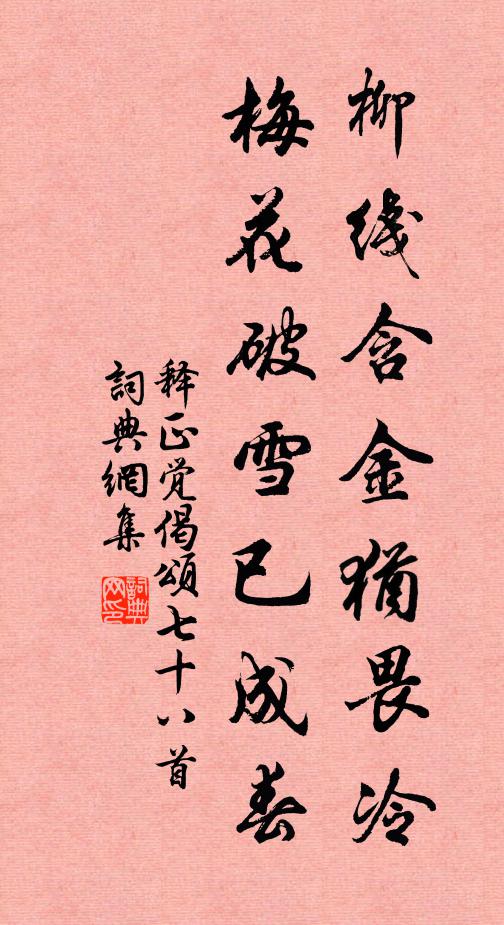 柳线含金犹畏冷
梅花破雪已成春
释正觉偈颂七十八首
詞典網集
詞典网印